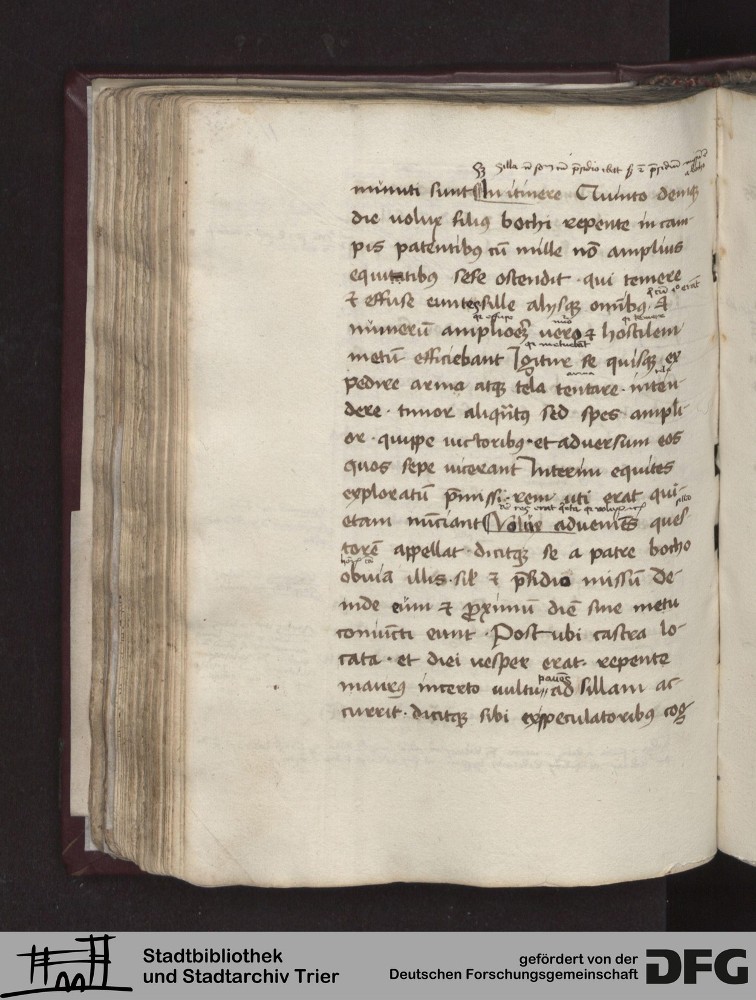 muniti sunt In itinere Quinto deniqꝫ
die uolux filiꝰ bochi repente in cam
pis patentibꝰ cū mille nō amplius
equitatibꝰ sese ostendit · qui temere
⁊ effuse euntes sille alijsqꝫ om̄ibꝰ · ⁊
numerū ampliorē uero ⁊ hostilem
metū efficiebant Igitur se quisqꝫ ex
pedire arma atqꝫ tela tentare · inten
dere · timor aliqn̄tꝰ sed spes ampli
or · quippe uictoribꝰ · et aduersum eos
quos sepe uicerant Interim equites
exploratū p̄missi · rem uti erat qui
etam nūciant Volux adueniēs ques
torē appellat · dicitqꝫ se a patre bocho
obuiā illis · sił ⁊ p̄sidio missū De
inde eūm ⁊ proximū diē sine metu
coniuncti eunt · Post ubi castra lo
cata · et diei uesper erat · repente
maurꝰ incerto uultu pauēs ad sillam ac
currit · dicitqꝫ sibi ex speculatoribꝰ cog
Stadtbibliothek
und Stadtarchiv Trier
gefördert von der
Deutschen Forschungsgemeinschaft
DFG